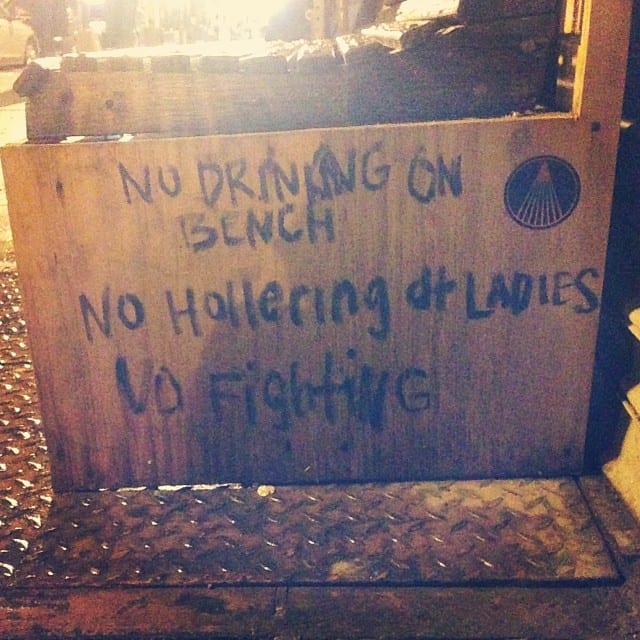 NO DRINKING ON
BENCH
NO HOllering At LADIES
NO FighTiNG